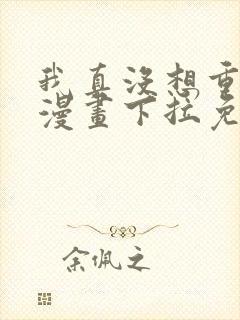 我真没想重
漫畫下拉免
余佩之